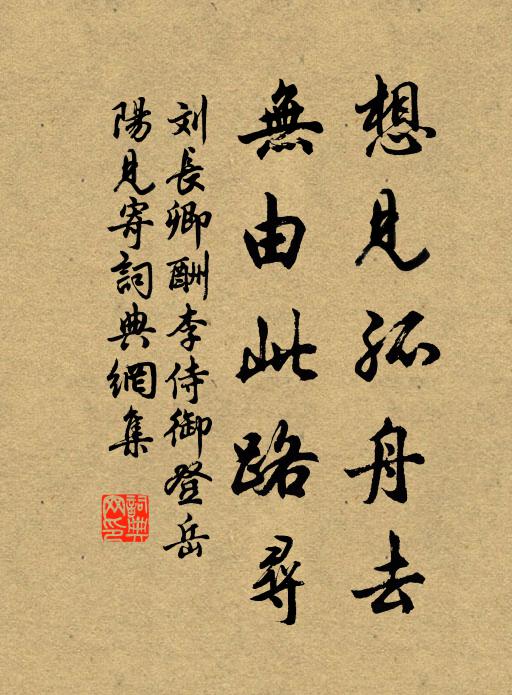 想見孤舟去
無由此路尋
刘長卿酬李侍御登岳
陽見寄詞典網集
詞典
网印